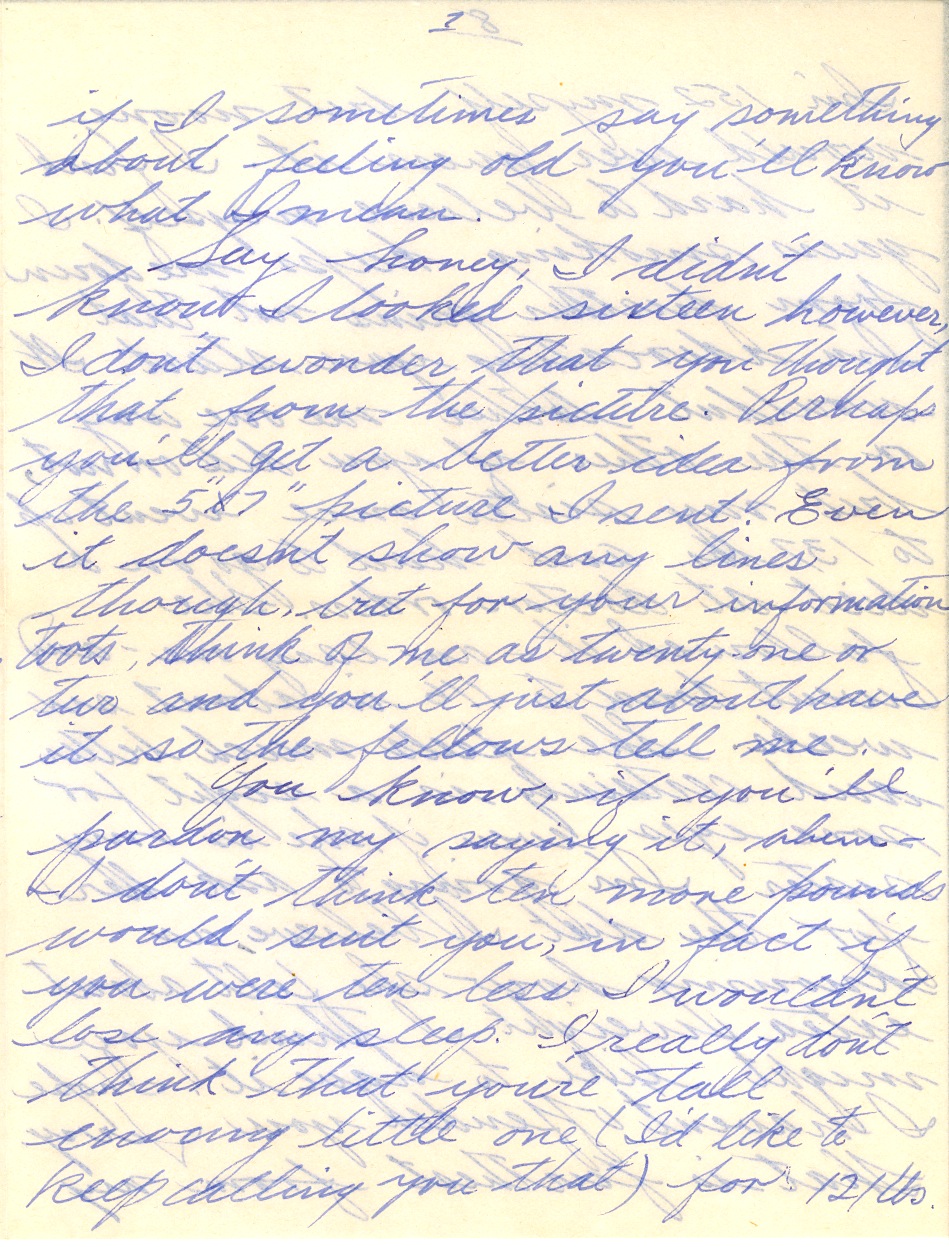 7
if I sometimes say something
about feeling old you'll know
what I mean.
Say honey, I didn't
know I looked sixteen however,
I don't wonder that you thought
that from the picture. Perhaps
you'll get a better idea from
the 5"x7" picture I sent. Even
it doesn't show any lines
though, but for your information
toots, think of me as twenty one or
two and you'll just about have
it so the fellows tell me.
You know, if you'll
pardon my saying it, ahem-
I don't think ten more pounds
would suit you, in fact if
you were ten less I wouldn't
lose any sleep. I really don't
think that you're tall
enough little one (I'd like to
keep calling you that) for 121 lbs.